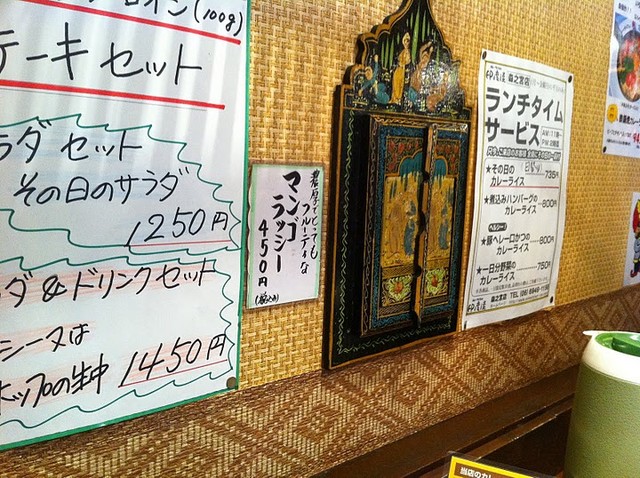 ロイン(100g)
ーキセット
ラダセット
その日のサラダ
1250円
ダ&ドリンクセット
シー又は
ホップの生中
1450円
濃厚でとっても
フルーティな
マンゴ
ラッシー
450円
(税込み)
森之宮店
ランチタイム
サービス
★その日の
カレーライス
735円
★煮込みハンバーグの
カレーライス
800円
ヘルシー!
★豚ヘレ一口かつの
カレーライス
800円
★一日分野菜の
カレーライス
750円
森之宮店
当店のカレ